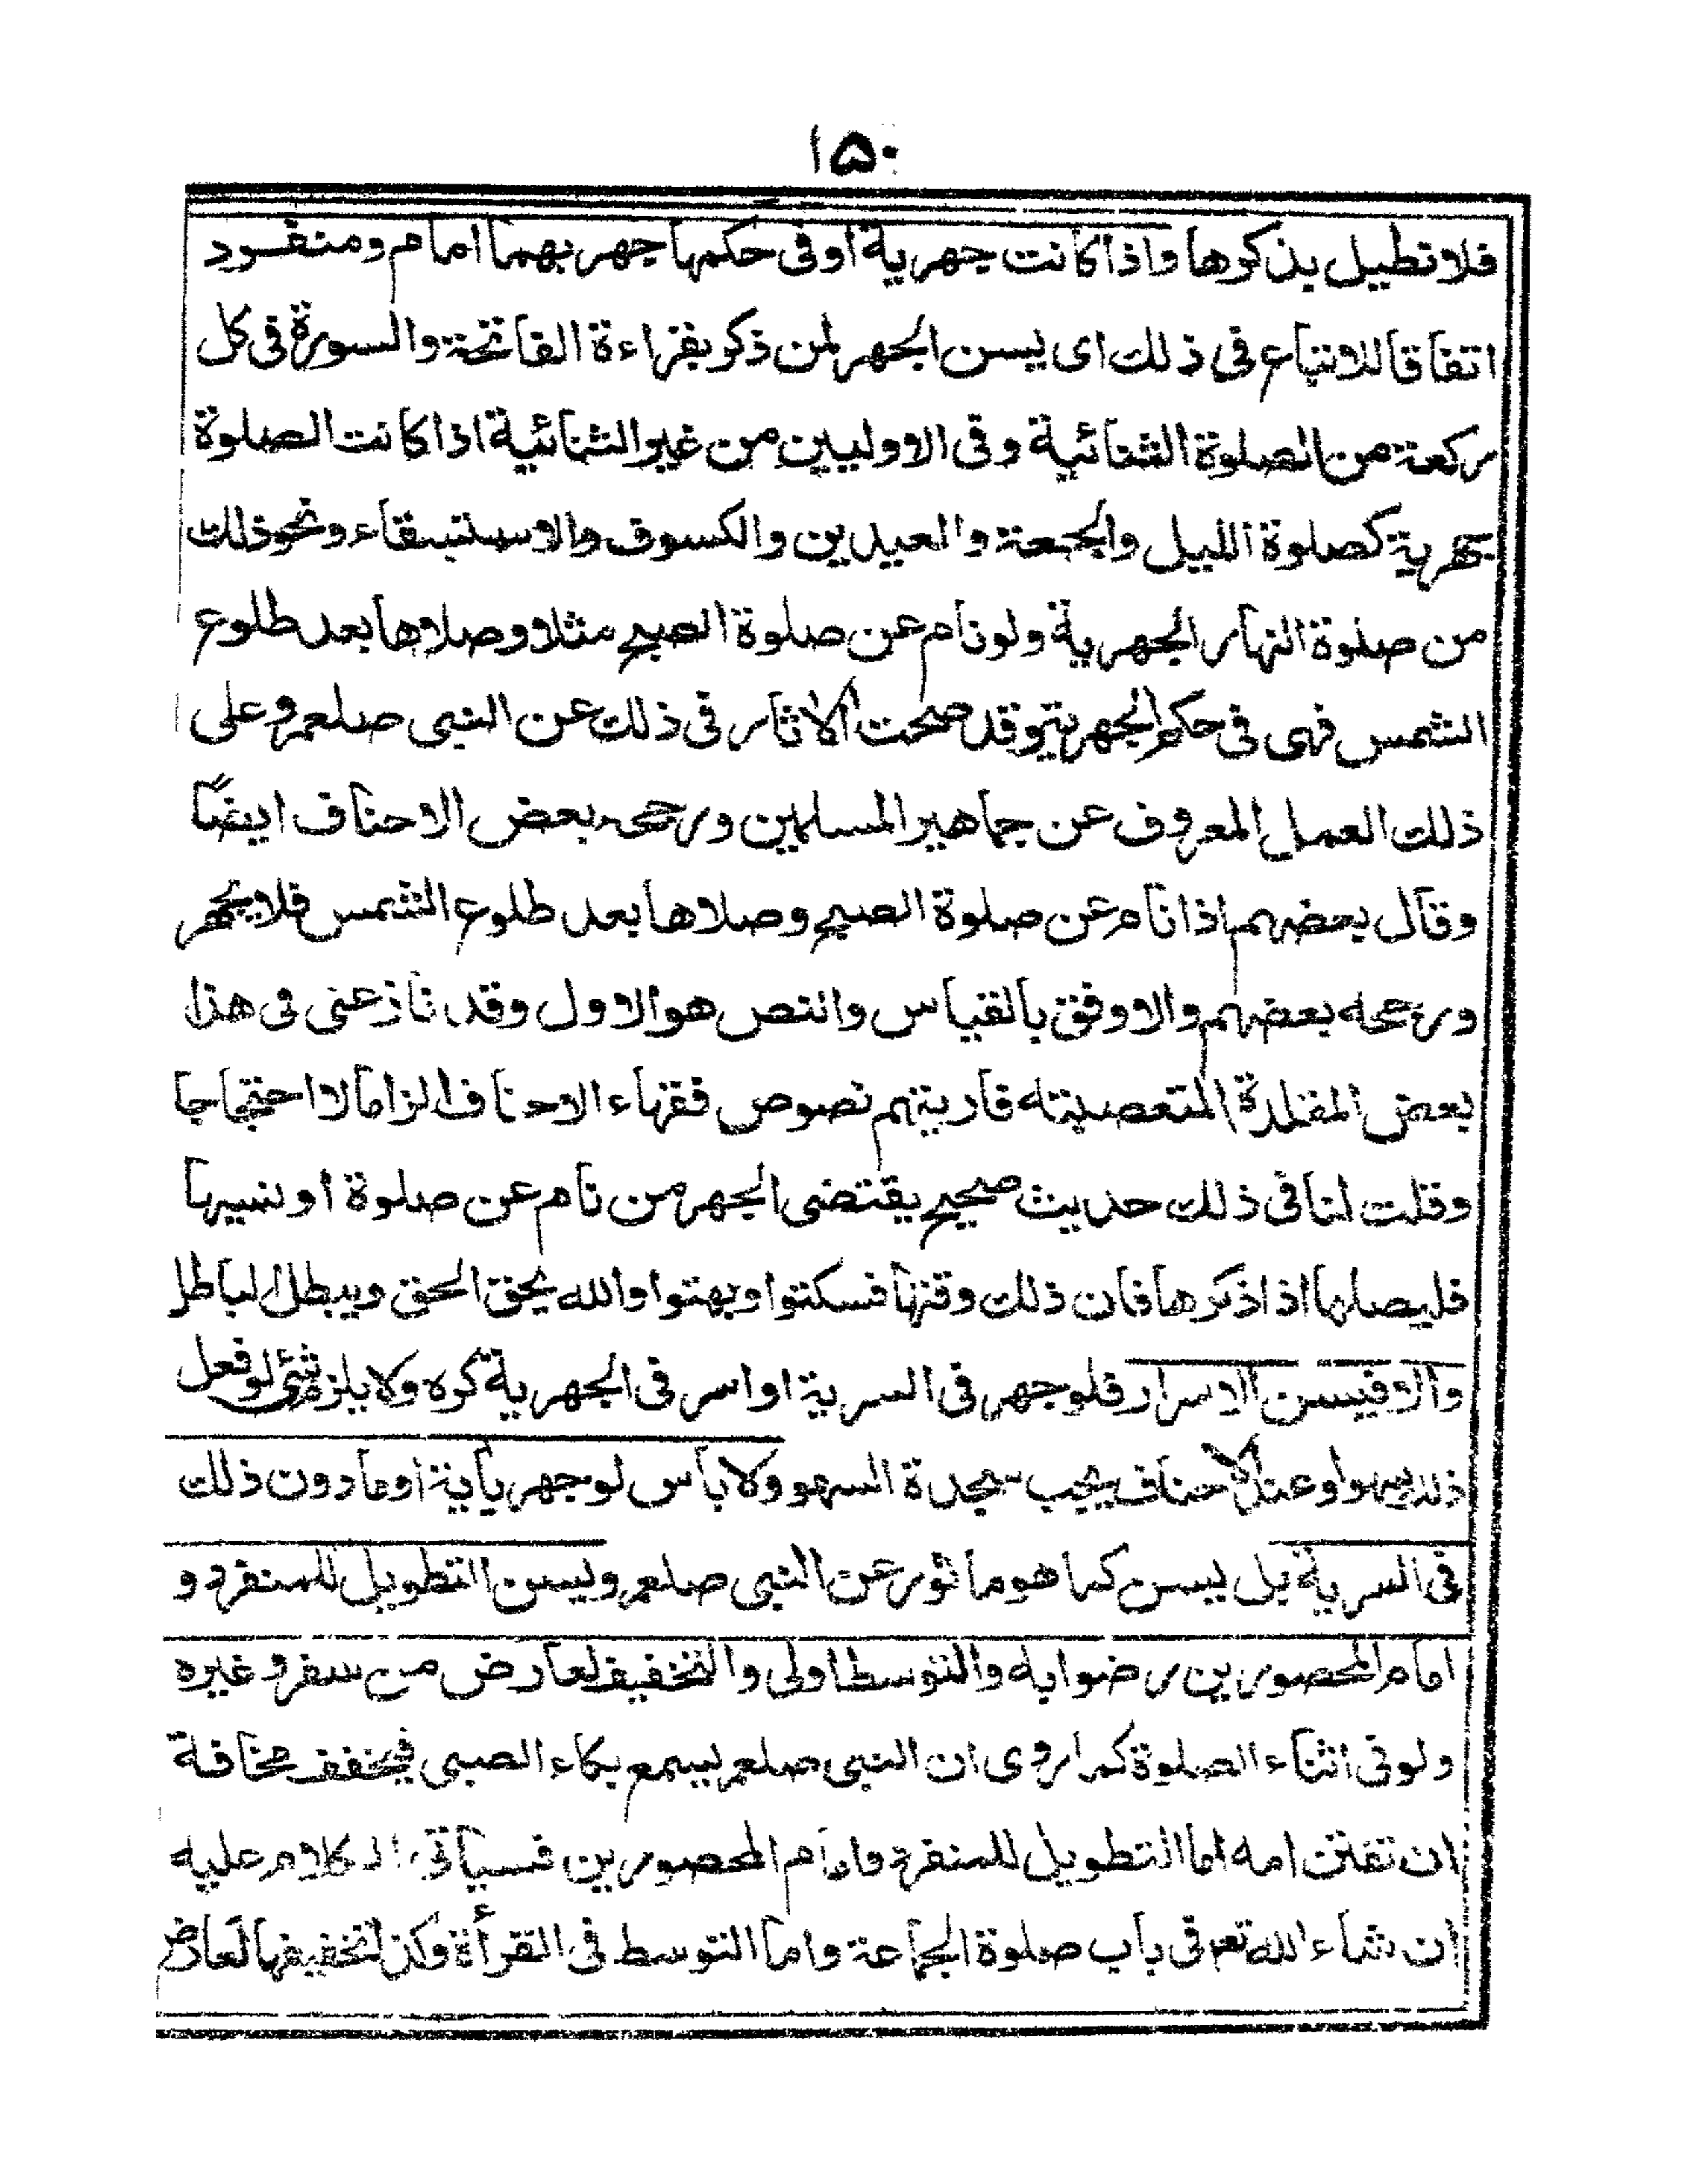 ۱۵۰
فلا نطيل بذكرها واذا كانت جهرية او فى حكمها جهر بهما امام ومنفرد
اتفاقا للاتباع فى ذلك اى يسن الجهر لمن ذكر بقراءة الفاتحة والسورة فى كل
ركعة من الصلوة الثنائية وفى الاوليين من غير الثنائية اذا كانت الصلوة
جهرية كصلوة الليل والجمعة والعيدين والكسوف والاستسقاء ونحو ذلك
من صلوة النهار الجهرية ولو نام عن صلوة الصبح مثلا وصلاها بعد طلوع
الشمس فهى فى حكم الجهرية وقد صحت الاثار فى ذلك عن النبى صلعم وعلى
ذلك العمل المعروف عن جماهير المسلمين ورجحه بعض الاحناف ايضًا
وقال بعضهم اذا نام عن صلوة الصبح وصلاها بعد طلوع الشمس فلا يجهر
ورجحه بعضهم والاوفق بالقياس والنص هو الاول وقد نازعنى فى هذا
بعض المقلدة المتعصبته فاريتهم نصوص فقهاء الاحناف الزاما لا احتجاجا
وقلت لنا فى ذلك حديث صحيح يقتضى الجهر من نام عن صلوة او نسيها
فليصلها اذا ذكرها فان ذلك وقتها فسكتوا وبهتوا والله يحق الحق ويبطل الباطل
والا فيسن الاسرار فلو جهر فى السرية او اسر فى الجهرية كره ولا يلزم شئى لو فعل
ذلك سهوا وعند الاحناف يجب سجدة السهو ولا بأس لو جهر بآية او ما دون ذلك
فى السرية بل يسن كما هو ماثور عن النبى صلعم ويسن التطويل للمنفرد و
امام المحصورين رضوا به والتوسط اولى والتخفيف لعارض من سفر وغيره
ولو فى اثناء الصلوة كما روى ان النبى صلعم ليسمع بكاء الصبى فيخفف مخافة
ان تفتن امه اما التطويل للمنفرد وامام المحصورين فسيأتى الكلام عليه
ان شاء الله تعم فى باب صلوة الجماعة واما التوسط فى القرأة وكذا تخفيفها لعارض